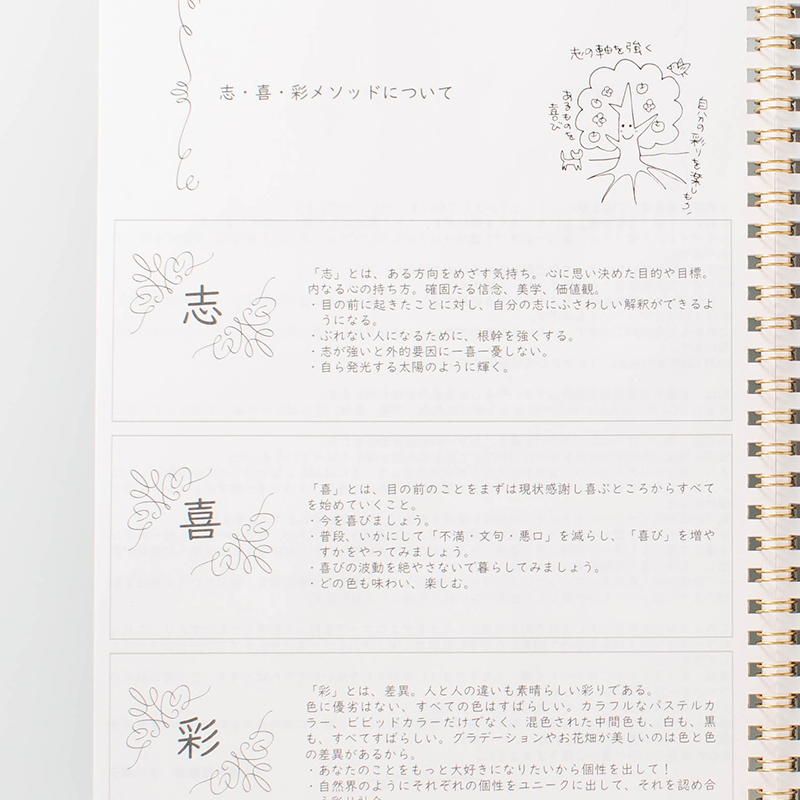 志・喜・彩メソッドについて
志の軸を強く
あるものを
喜び
自分の彩りを楽しもう!
志
「志」とは、ある方向をめざす気持ち。心に思い決めた目的や目標。
内なる心の持ち方。確固たる信念、美学、価値観。
・目の前に起きたことに対し、自分の志にふさわしい解釈ができるよ
うになる。
・ぶれない人になるために、根幹を強くする。
・志が強いと外的要因に一喜一憂しない。
・自ら発光する太陽のように輝く。
喜
「喜」とは、目の前のことをまずは現状感謝し喜ぶところからすべて
を始めていくこと。
・今を喜びましょう。
・普段、いかにして「不満・文句・悪口」を減らし、「喜び」を増や
すかをやってみましょう。
・喜びの波動を絶やさないで暮らしてみましょう。
・どの色も味わい、楽しむ。
彩
「彩」とは、差異。人と人の違いも素晴らしい彩りである。
色に優劣はない、すべての色はすばらしい。カラフルなパステルカ
ラー、ビビッドカラーだけでなく、混色された中間色も、白も、黒
も、すべてすばらしい。グラデーションやお花畑が美しいのは色と色
の差異があるから。
・あなたのことをもっと大好きになりたいから個性を出して！
・自然界のようにそれぞれの個性をユニークに出して、それを認め合